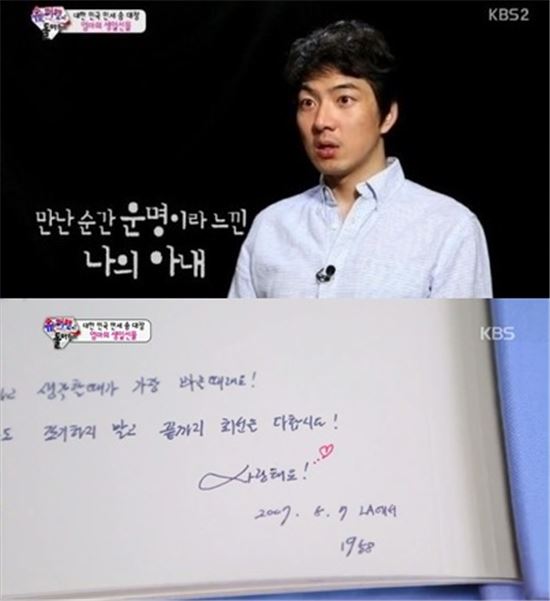 슈퍼맨이 돌아왔다
대한 민국 만세 송 대장
엄마의 생일선물
KBS2
만난 순간 운명이라 느낀
나의 아내
슈퍼맨이 돌아왔다
대한 민국 만세 송 대장
엄마의 생일선물
KBS
생각할때가 가장 빠른때래요!
도 포기하지 말고 끝까지 최선을 다합시다!
사랑해요!
2007. 8. 7 LA에서